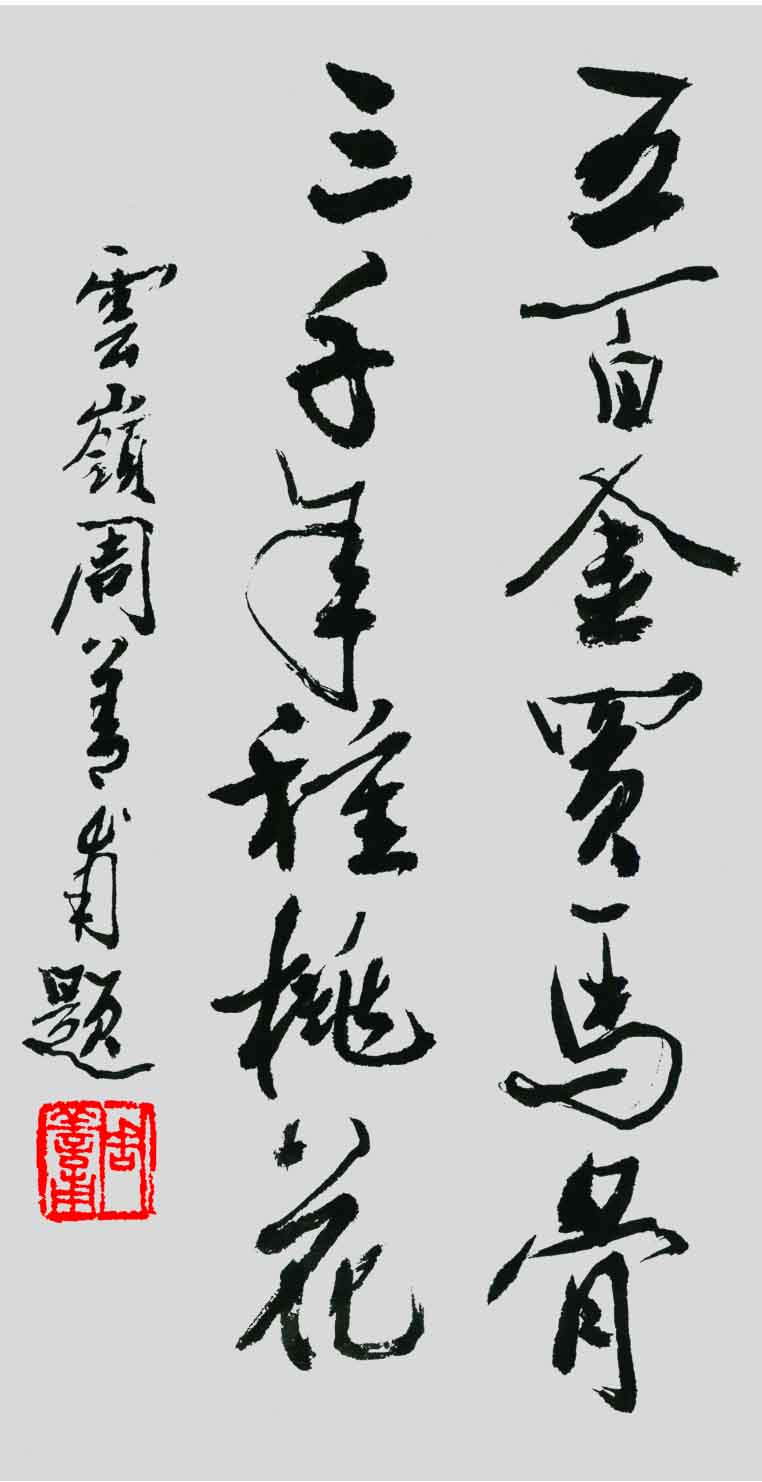 五百金買馬骨
三千年種桃花
雲嶺周善甫題
周善甫